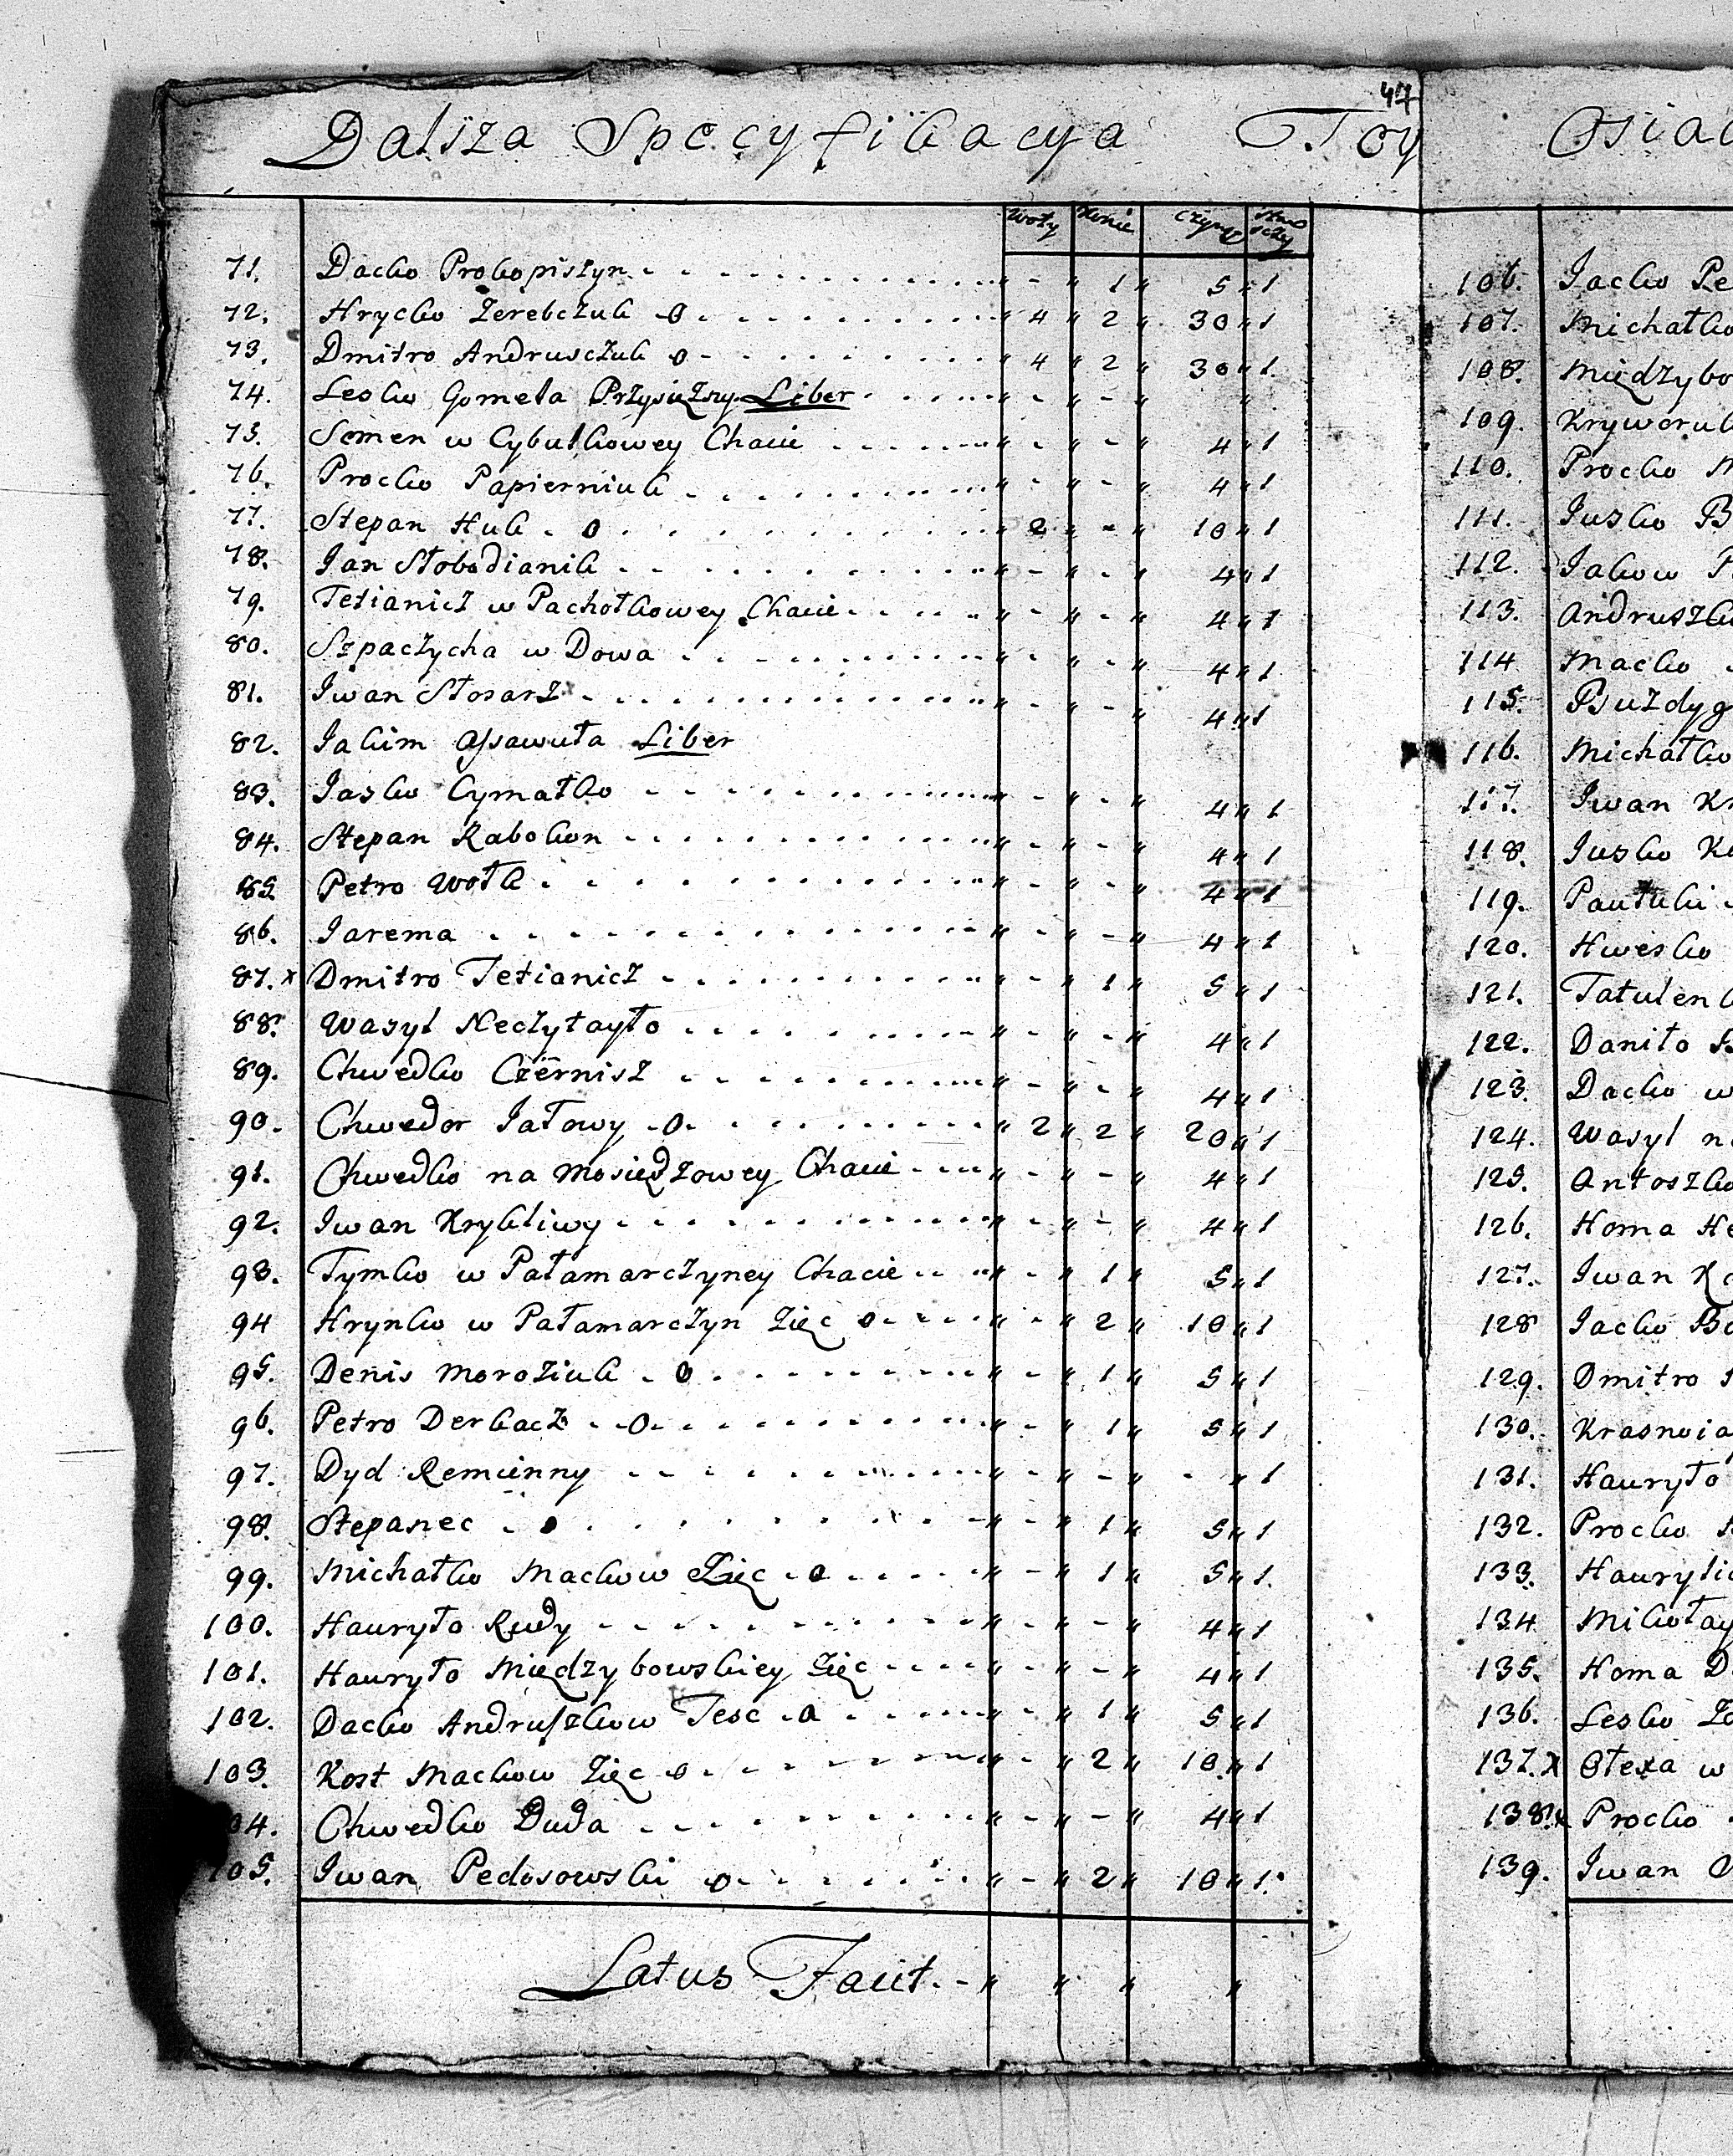 47
Dalsza Specyfikacya Toy Osiad
Woły Konie Czynsz
71. Dacko Prokopiszyn - 1 5 1
72. Hrycko Zerebczuk o 4 2 30 1
73. Dmitro Andrusczuk o 4 2 30 1
74. Lesko Gomela Przysiężny Liber - -
75. Semen w Cybulkowey Chacie - - 4 1
76. Procko Papierniuk - - 4 1
77. Stepan Huk o 2 - 10 1
78. Jan Słobodianik - - 4 1
79. Tetianicz w Pachołkowey Chacie - - 4 1
80. Szpaczycha w Dowa - - 4 1
81. Iwan Słosarz - - 4 1
82. Jakim Assawuła Liber
83. Jasko Cymałko - - 4 1
84. Stepan Rabokon - - 4 1
85. Petro Wołk - - 4 1
86. Jarema - - 4 1
87. x Dmitro Tetianicz - 1 5 1
88. Wasyl Neczytayło - - 4 1
89. Chwedko Czernisz - - 4 1
90. Chwedor Jałowy o 2 2 20 1
91. Chwedko na Mosiędzowey Chacie - - 4 1
92. Iwan Krykliwy - - 4 1
93. Tymko w Pałamarczyney Chacie - 1 5 1
94 Hrynko w Pałamarczyn Zięc o - 2 10 1
95. Denis Moroziuk o - 1 5 1
96. Petro Derkacz o - 1 5 1
97. Dyd Remienny - - - 1
98. Stepanec o - 1 5 1
99. Michałko Mackow Zięc o - 1 5 1
100. Hauryło Rudy - - 4 1
101. Hauryło Międzybowskiey Zięc - - 4 1
102. Dacko Andruszkow Tesc o - 1 5 1
103. Kost Mackow Zięc o - 2 10 1
104. Chwedko Duda - - 4 1
105. Iwan Pedosowski o - 2 10 1
Latus Facit
106. Jacko Pe
107. Michałko
108. Międzybo
109. Kryworuk
110. Procko
111. Jusko B
112. Jakow P
113. Andruszko
114 Macko
115.
116. Michałko
117. Iwan Kr
118. Jusko
119.
120. Hwesko
121. Tatulenk
122. Daniło
123. Dacko w
124. Wasyl n
125. Antoszko
126. Homa He
127. Iwan
128 Jacko
129. Dmitro
130. Krasnoia
131. Hauryło
132. Procko
133. Haurylic
134 Mikołay
135. Homa D
136. Lesko
137. x Ołexa w
138. x Procko
139. Iwan